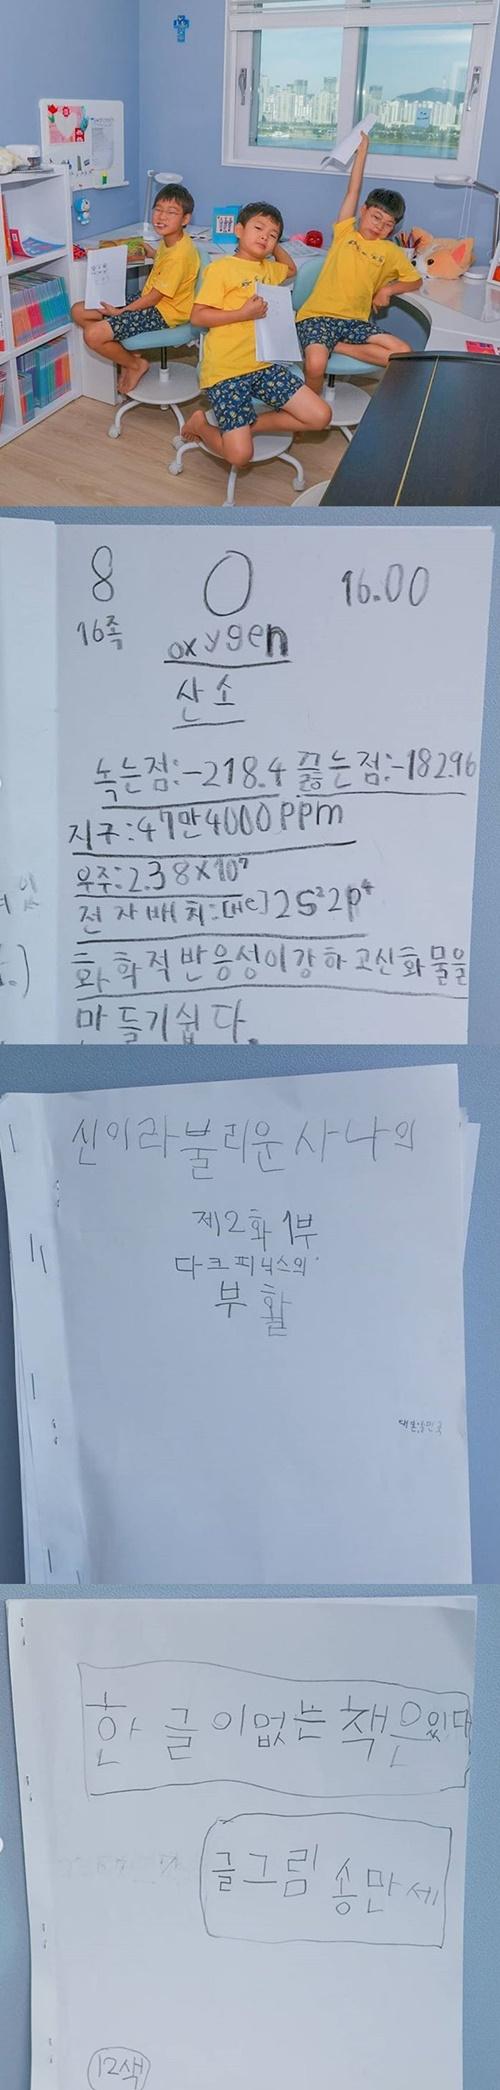 8 O 16.00
16족 oxygen
산소
녹는점:-218.4 끓는점:-182.96
지구:47만4000ppm
우주:2.38×10⁷
전자배치:[He]2S²2P⁴
화학적반응성이강하고산화물을
만들기쉽다.
신이라불리운사나의
제2화1부
다크피닉스의
부활
한글이없는책은있다
글그림 송만세
12색